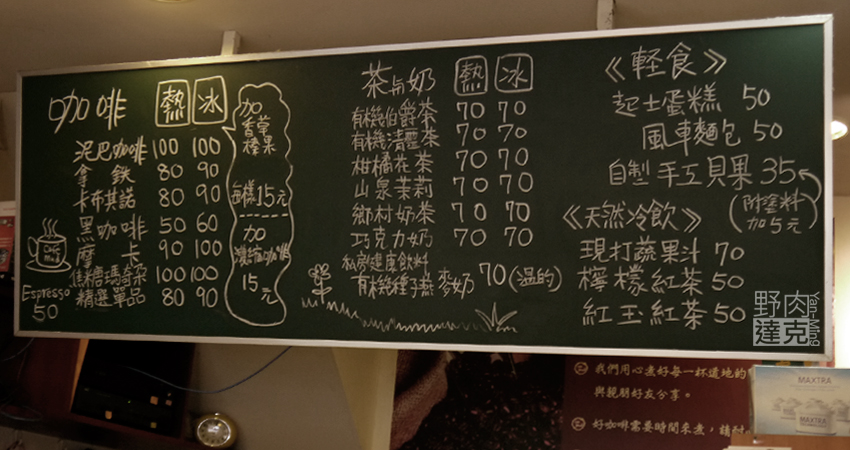 咖啡 熱 冰
泥巴咖啡 100 100
拿鐵 80 90
卡布其諾 80 90
黑咖啡 50 60
摩卡 90 100
焦糖瑪奇朵 100 100
精選單品 80 90
Espresso
50
加
香草
榛果
每樣15元
加
濃縮咖啡
15元
茶与奶 熱 冰
有機伯爵茶 70 70
有機清靈茶 70 70
柑橘花茶 70 70
山泉茉莉 70 70
鄉村奶茶 70 70
巧克力奶 70 70
私房健康飲料
有機種子燕麥奶 70(溫的)
《輕食》
起士蛋糕 50
風車麵包 50
自製手工貝果 35
(附塗料
加5元)
《天然冷飲》
現打蔬果汁 70
檸檬紅茶 50
紅玉紅茶 50
野肉
達克
Yan-Ming
我們用心煮好每一杯道地的
與親朋好友分享。
好咖啡需要時間來煮，請耐
MAXTRA
MAXTRA